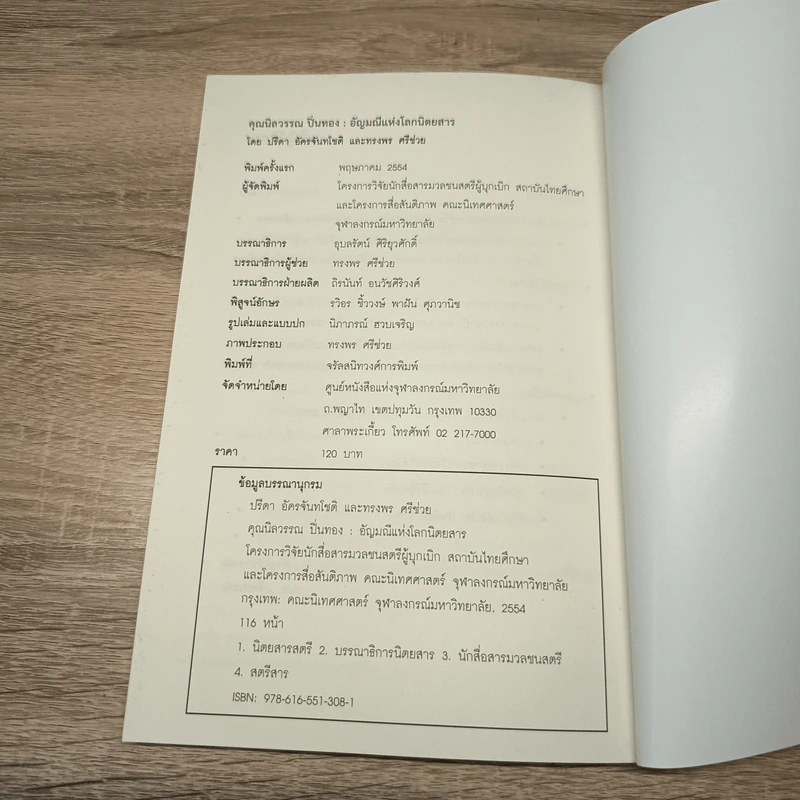 คุณนิลวรรณ ปิ่นทอง : อัญมณีแห่งโลกนิตยสาร
โดย ปรีดา อัครจันทโชติ และทรงพร ศรีช่วย
พิมพ์ครั้งแรก พฤษภาคม 2554
ผู้จัดพิมพ์ โครงการวิจัยนักสื่อสารมวลชนสตรีผู้บุกเบิก สถาบันไทยศึกษา
และโครงการสื่อสันติภาพ คณะนิเทศศาสตร์
จุฬาลงกรณ์มหาวิทยาลัย
บรรณาธิการ อุบลรัตน์ ศิริยุวศักดิ์
บรรณาธิการผู้ช่วย ทรงพร ศรีช่วย
บรรณาธิการฝ่ายผลิต ถิรนันท์ อนวัชศิริวงศ์
พิสูจน์อักษร รวิอร ชิ้ววงษ์ พาฝัน ศุภวานิช
รูปเล่มและแบบปก นิภาภรณ์ ฮวบเจริญ
ภาพประกอบ ทรงพร ศรีช่วย
พิมพ์ที่ จรัลสนิทวงศ์การพิมพ์
จัดจำหน่ายโดย ศูนย์หนังสือแห่งจุฬาลงกรณ์มหาวิทยาลัย
ถ.พญาไท เขตปทุมวัน กรุงเทพ 10330
ศาลาพระเกี้ยว โทรศัพท์ 02 217-7000
ราคา 120 บาท
ข้อมูลบรรณานุกรม
ปรีดา อัครจันทโชติ และทรงพร ศรีช่วย
คุณนิลวรรณ ปิ่นทอง : อัญมณีแห่งโลกนิตยสาร
โครงการวิจัยนักสื่อสารมวลชนสตรีผู้บุกเบิก สถาบันไทยศึกษา
และโครงการสื่อสันติภาพ คณะนิเทศศาสตร์ จุฬาลงกรณ์มหาวิทยาลัย
กรุงเทพ: คณะนิเทศศาสตร์ จุฬาลงกรณ์มหาวิทยาลัย, 2554
116 หน้า
1. นิตยสารสตรี 2. บรรณาธิการนิตยสาร 3. นักสื่อสารมวลชนสตรี
4. สตรีสาร
ISBN: 978-616-551-308-1